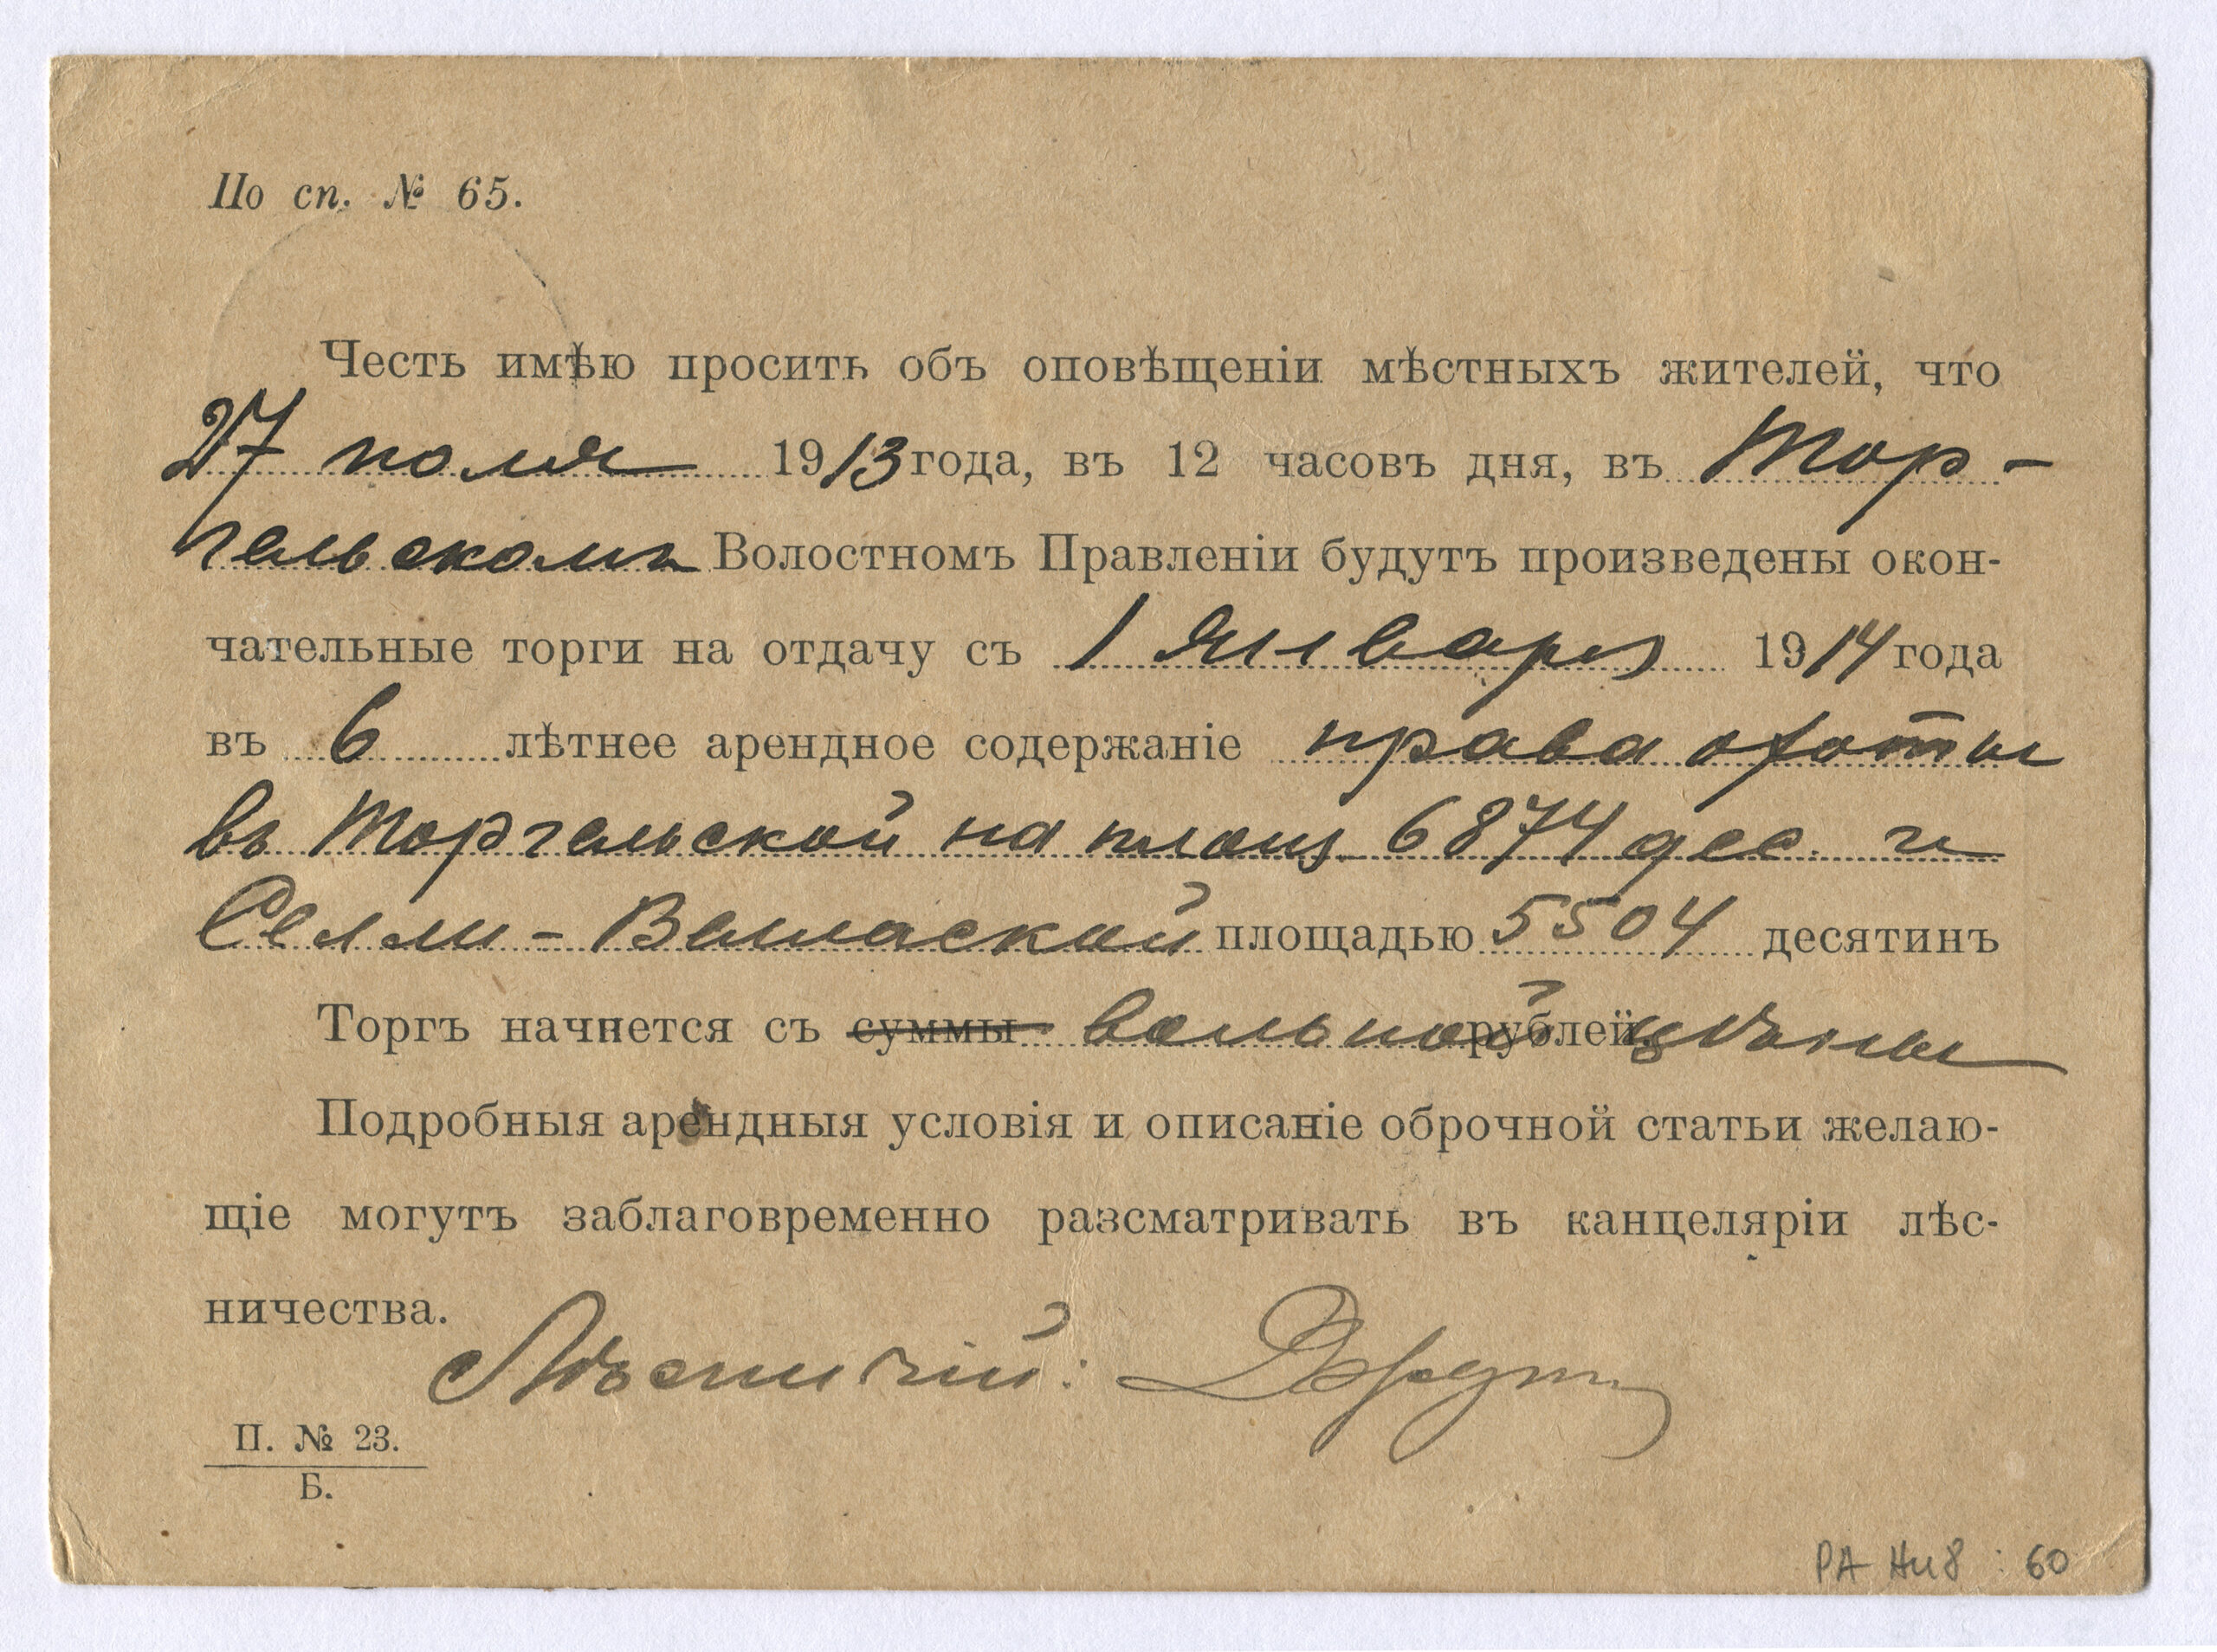 По сп. № 65.
Честь имѣю просить объ оповѣщеніи мѣстныхъ жителей, что
27 іюля 1913 года, въ 12 часовъ дня, въ Тор-
гельскомъ Волостномъ Правленіи будутъ произведены окон-
чательные торги на отдачу съ 1 Января 1914 года
въ 6 лѣтнее арендное содержаніе права охоты
въ Торгельской на площ. 6874 дес. и
Селли- площадью 5504 десятинъ
Торгъ начнется съ суммы вольной рублей цѣны
Подробныя арендныя условія и описаніе оброчной статьи желаю-
щіе могутъ заблаговременно разсматривать въ канцеляріи лѣс-
ничества.
Лѣсничій:
П. № 23.
Б.
РА Ни8 : 60